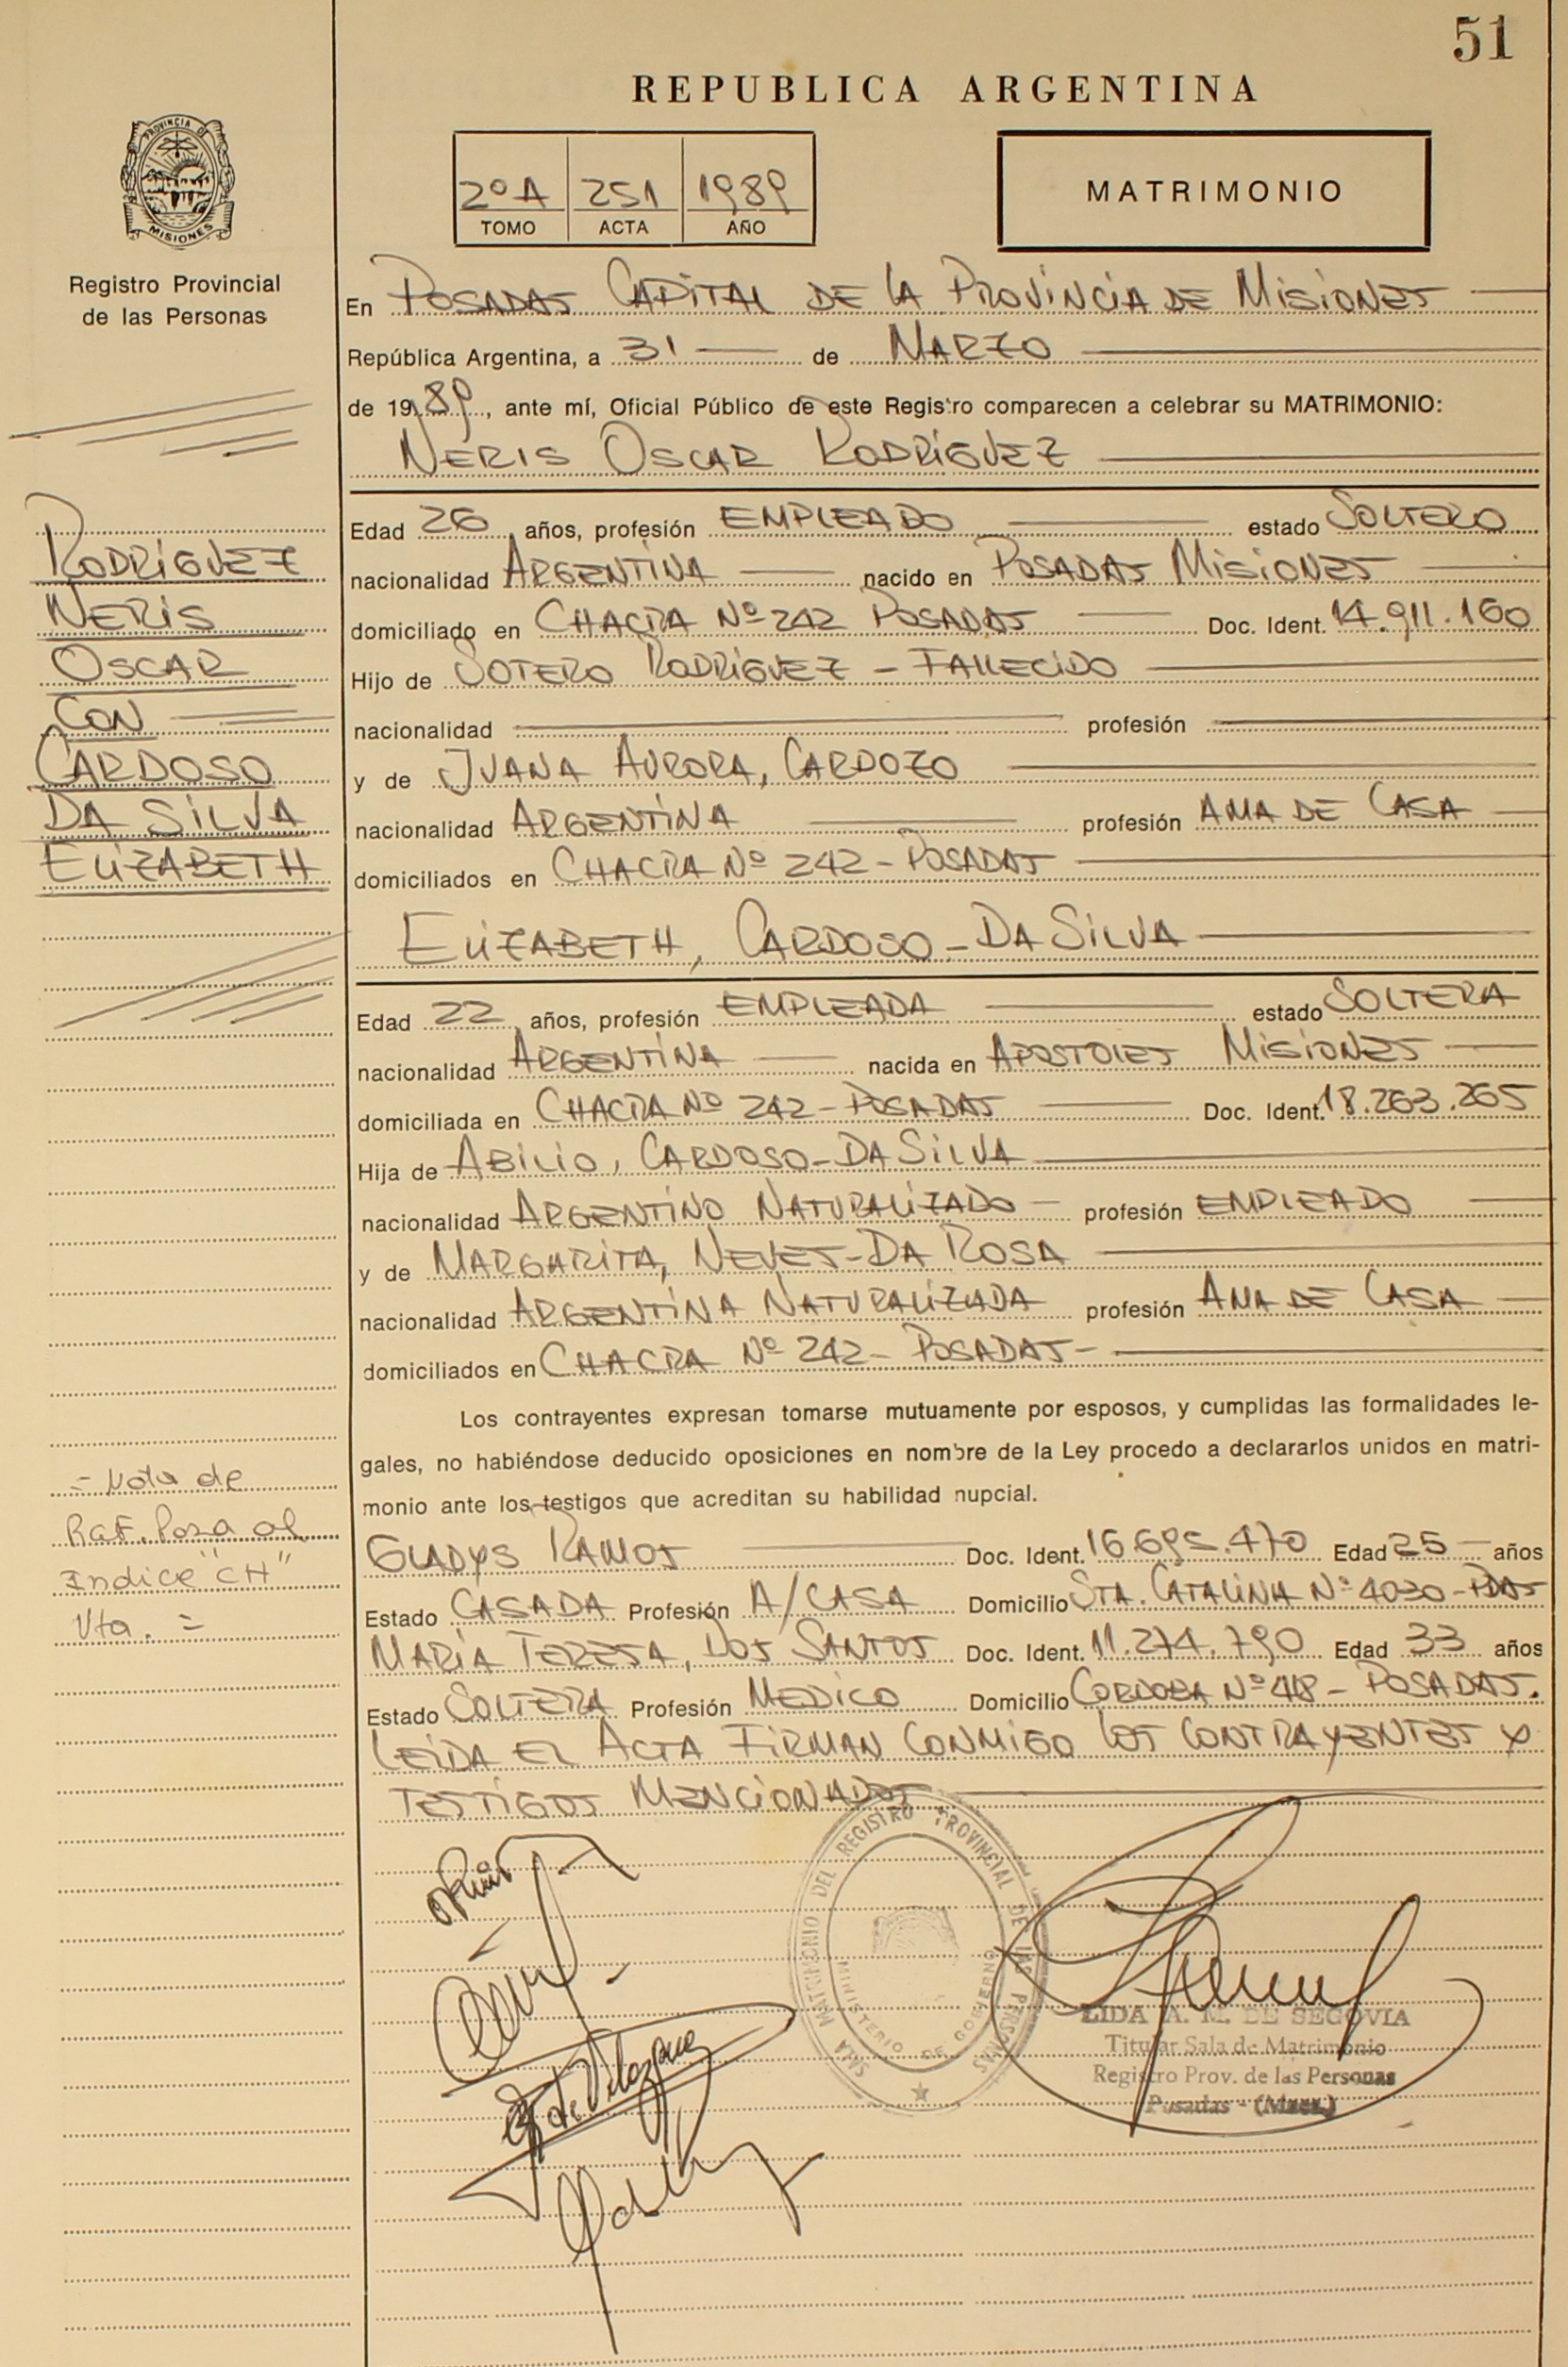 51
REPUBLICA ARGENTINA
PROVINCIA DE
MISIONES
Registro Provincial
de las Personas
2º A 251 1989
TOMO ACTA AÑO
MATRIMONIO
En POSADAS CAPITAL DE LA PROVINCIA DE MISIONES
República Argentina, a 31 de MARZO
de 1989, ante mí, Oficial Público de este Registro comparecen a celebrar su MATRIMONIO:
NERIS OSCAR RODRÍGUEZ
RODRÍGUEZ
NERIS
OSCAR
CON
CARDOSO
DA SILVA
ELIZABETH
Edad 26 años, profesión EMPLEADO estado SOLTERO
nacionalidad ARGENTINA nacido en POSADAS MISIONES
domiciliado en CHACRA Nº 242 POSADAS Doc. Ident. 14.911.160
Hijo de SOTERO RODRÍGUEZ - FALLECIDO
nacionalidad profesión
y de JUANA AURORA, CARDOZO
nacionalidad ARGENTINA profesión AMA DE CASA
domiciliados en CHACRA Nº 242 - POSADAS
ELIZABETH, CARDOSO - DA SILVA
Edad 22 años, profesión EMPLEADA estado SOLTERA
nacionalidad ARGENTINA nacida en APOSTOLES MISIONES
domiciliada en CHACRA Nº 242 - POSADAS Doc. Ident. 18.263.265
Hija de ABILIO, CARDOSO - DA SILVA
nacionalidad ARGENTINO NATURALIZADO profesión EMPLEADO
y de MARGARITA, NEVES - DA ROSA
nacionalidad ARGENTINA NATURALIZADA profesión AMA DE CASA
domiciliados en CHACRA Nº 242 - POSADAS -
Los contrayentes expresan tomarse mutuamente por esposos, y cumplidas las formalidades le-
gales, no habiéndose deducido oposiciones en nombre de la Ley procedo a declararlos unidos en matri-
monio ante los testigos que acreditan su habilidad nupcial.
= Nota de
Ref. Pasa al
Indice "CH"
Vta. =
GLADYS RAMOS Doc. Ident. 16.695.470 Edad 25 años
Estado CASADA Profesión A/CASA Domicilio STA. CATALINA Nº 4030 - PDAS
MARÍA TERESA, DOS SANTOS Doc. Ident. 11.274.790 Edad 33 años
Estado SOLTERA Profesión MEDICO Domicilio CORDOBA Nº 418 - POSADAS.
LEIDA EL ACTA FIRMAN CONMIGO LOS CONTRAYENTES Y
TESTIGOS MENCIONADOS
SALA MATRIMONIO DEL REGISTRO PROVINCIAL DE LAS PERSONAS
MINISTERIO DE GOBIERNO
LIDA A. M. DE SEGOVIA
Titular Sala de Matrimonio
Registro Prov. de las Personas
Posadas - (Mnes.)